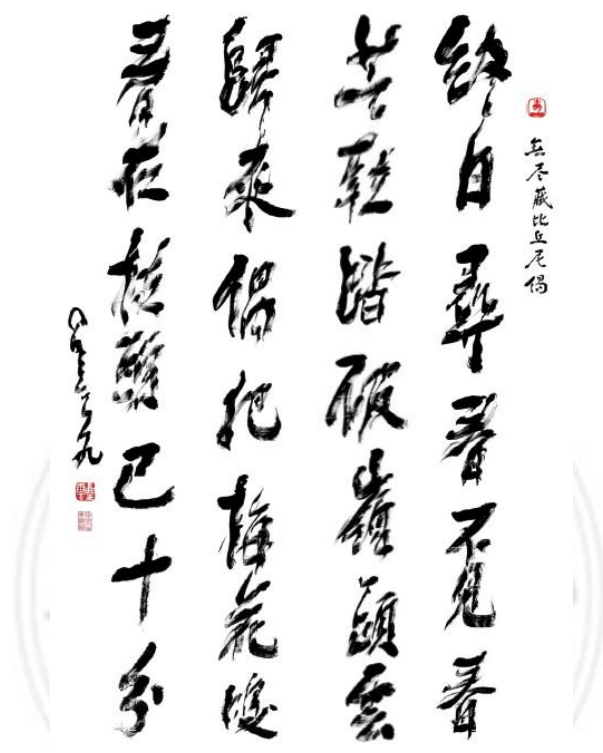 無尽藏比丘尼偈
終日尋春不見春
芒鞋踏破嶺頭雲
歸來偶把梅花嗅
春在枝頭已十分